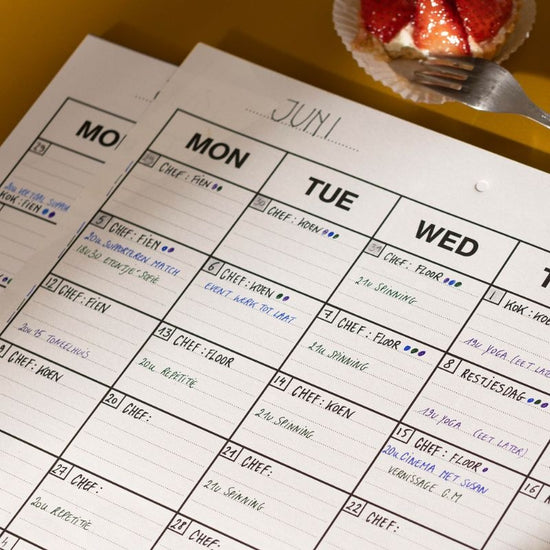 JUNI
MO
29
20u VEETAAL SUPPORT
KOK: FIEN
MON
TUE
WED
T
29 CHEF: FIEN
30 CHEF: KOEN
31 CHEF: FLOOR
21u SPINNING
1 KOK: KO
19u YOGA (EET LATER)
5 CHEF: FIEN
20u SUPPORTEREN MATCH
18u30 ETENTJE SOFIE
6 CHEF: KOEN
EVENT WERK TOT LAAT
7 CHEF: FLOOR
21u SPINNING
8 RESTJESDAG
19u YOGA (EET LATER)
12 CHEF: FIEN
20u15 TONEELHUIS
13 CHEF: FLOOR
20u REPETITIE
14 CHEF: KOEN
21u SPINNING
15 CHEF: FLOOR
20u CINEMA MET SUSAN
VERNISSAGE G.M
16
9 CHEF: KOEN
20 CHEF:
21 CHEF:
21u SPINNING
22 CHEF:
27 CHEF:
20u REPETITIE
28 CHEF:
4